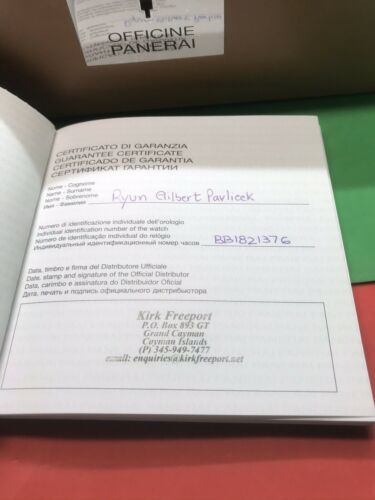 OFFICINE
PANERAI
CERTIFICATO DI GARANZIA
GUARANTEE CERTIFICATE
CERTIFICADO DE GARANTIA
СЕРТИФИКАТ ГАРАНТИИ
Nome - Cognome
Name - Surname
Nome - Sobrenome
Имя - Фамилия Ryun Gilbert Pavlicek
Numero di identificazione individuale dell'orologio
Individual identification number of the watch
Número de identificação individual do relógio
Индивидуальный идентификационный номер часов BB1821376
Data, timbro e firma del Distributore Ufficiale
Date, stamp and signature of the Official Distributor
Data, carimbo e assinatura do Distribuidor Oficial
Дата, печать и подпись официального дистрибьютора
Kirk Freeport
P.O. Box 893 GT
Grand Cayman
Cayman Islands
(P) 345-949-7477
email: enquiries@kirkfreeport.net